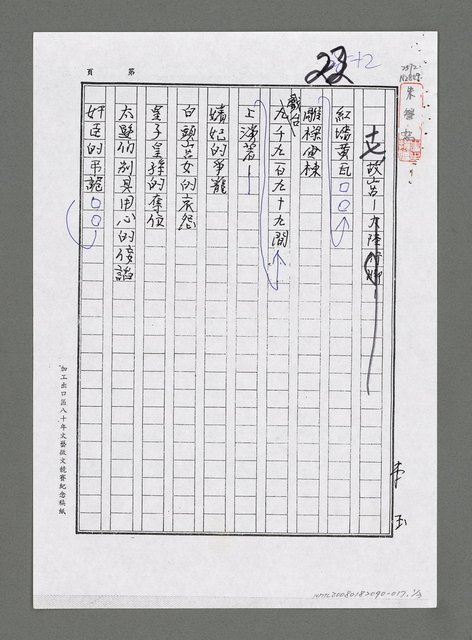 頁　第
2512
十七 故宮—九陸行脚—
紅墻黃瓦□□
雕樑畫棟
九千九百九十九間
戲台
上演著——
嬪妃的爭寵
白頭宮女的哀怨
皇子皇孫的奪位
太監們別具用心的傳話
奸臣的弄龍□□
加工出口區八十年文藝徵文競賽紀念稿紙
NMTL20080182090-017, 1/3